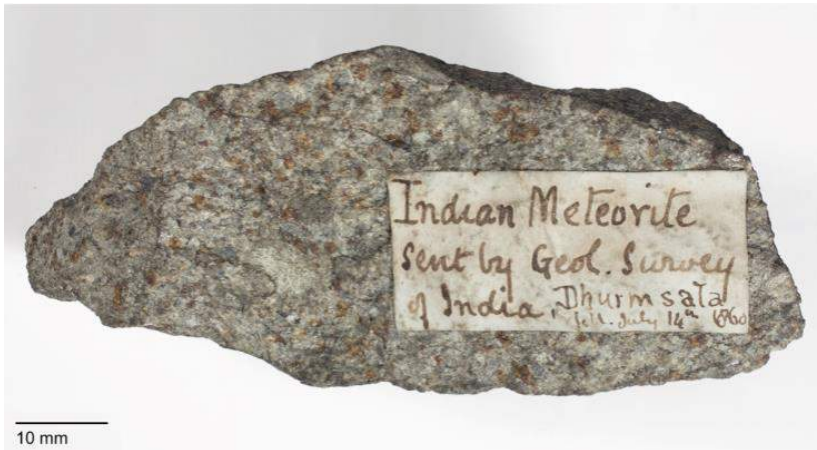 Indian Meteorite
sent by Geol. Survey
of India. Dhurmsala
fell. July 14th 1860
10 mm